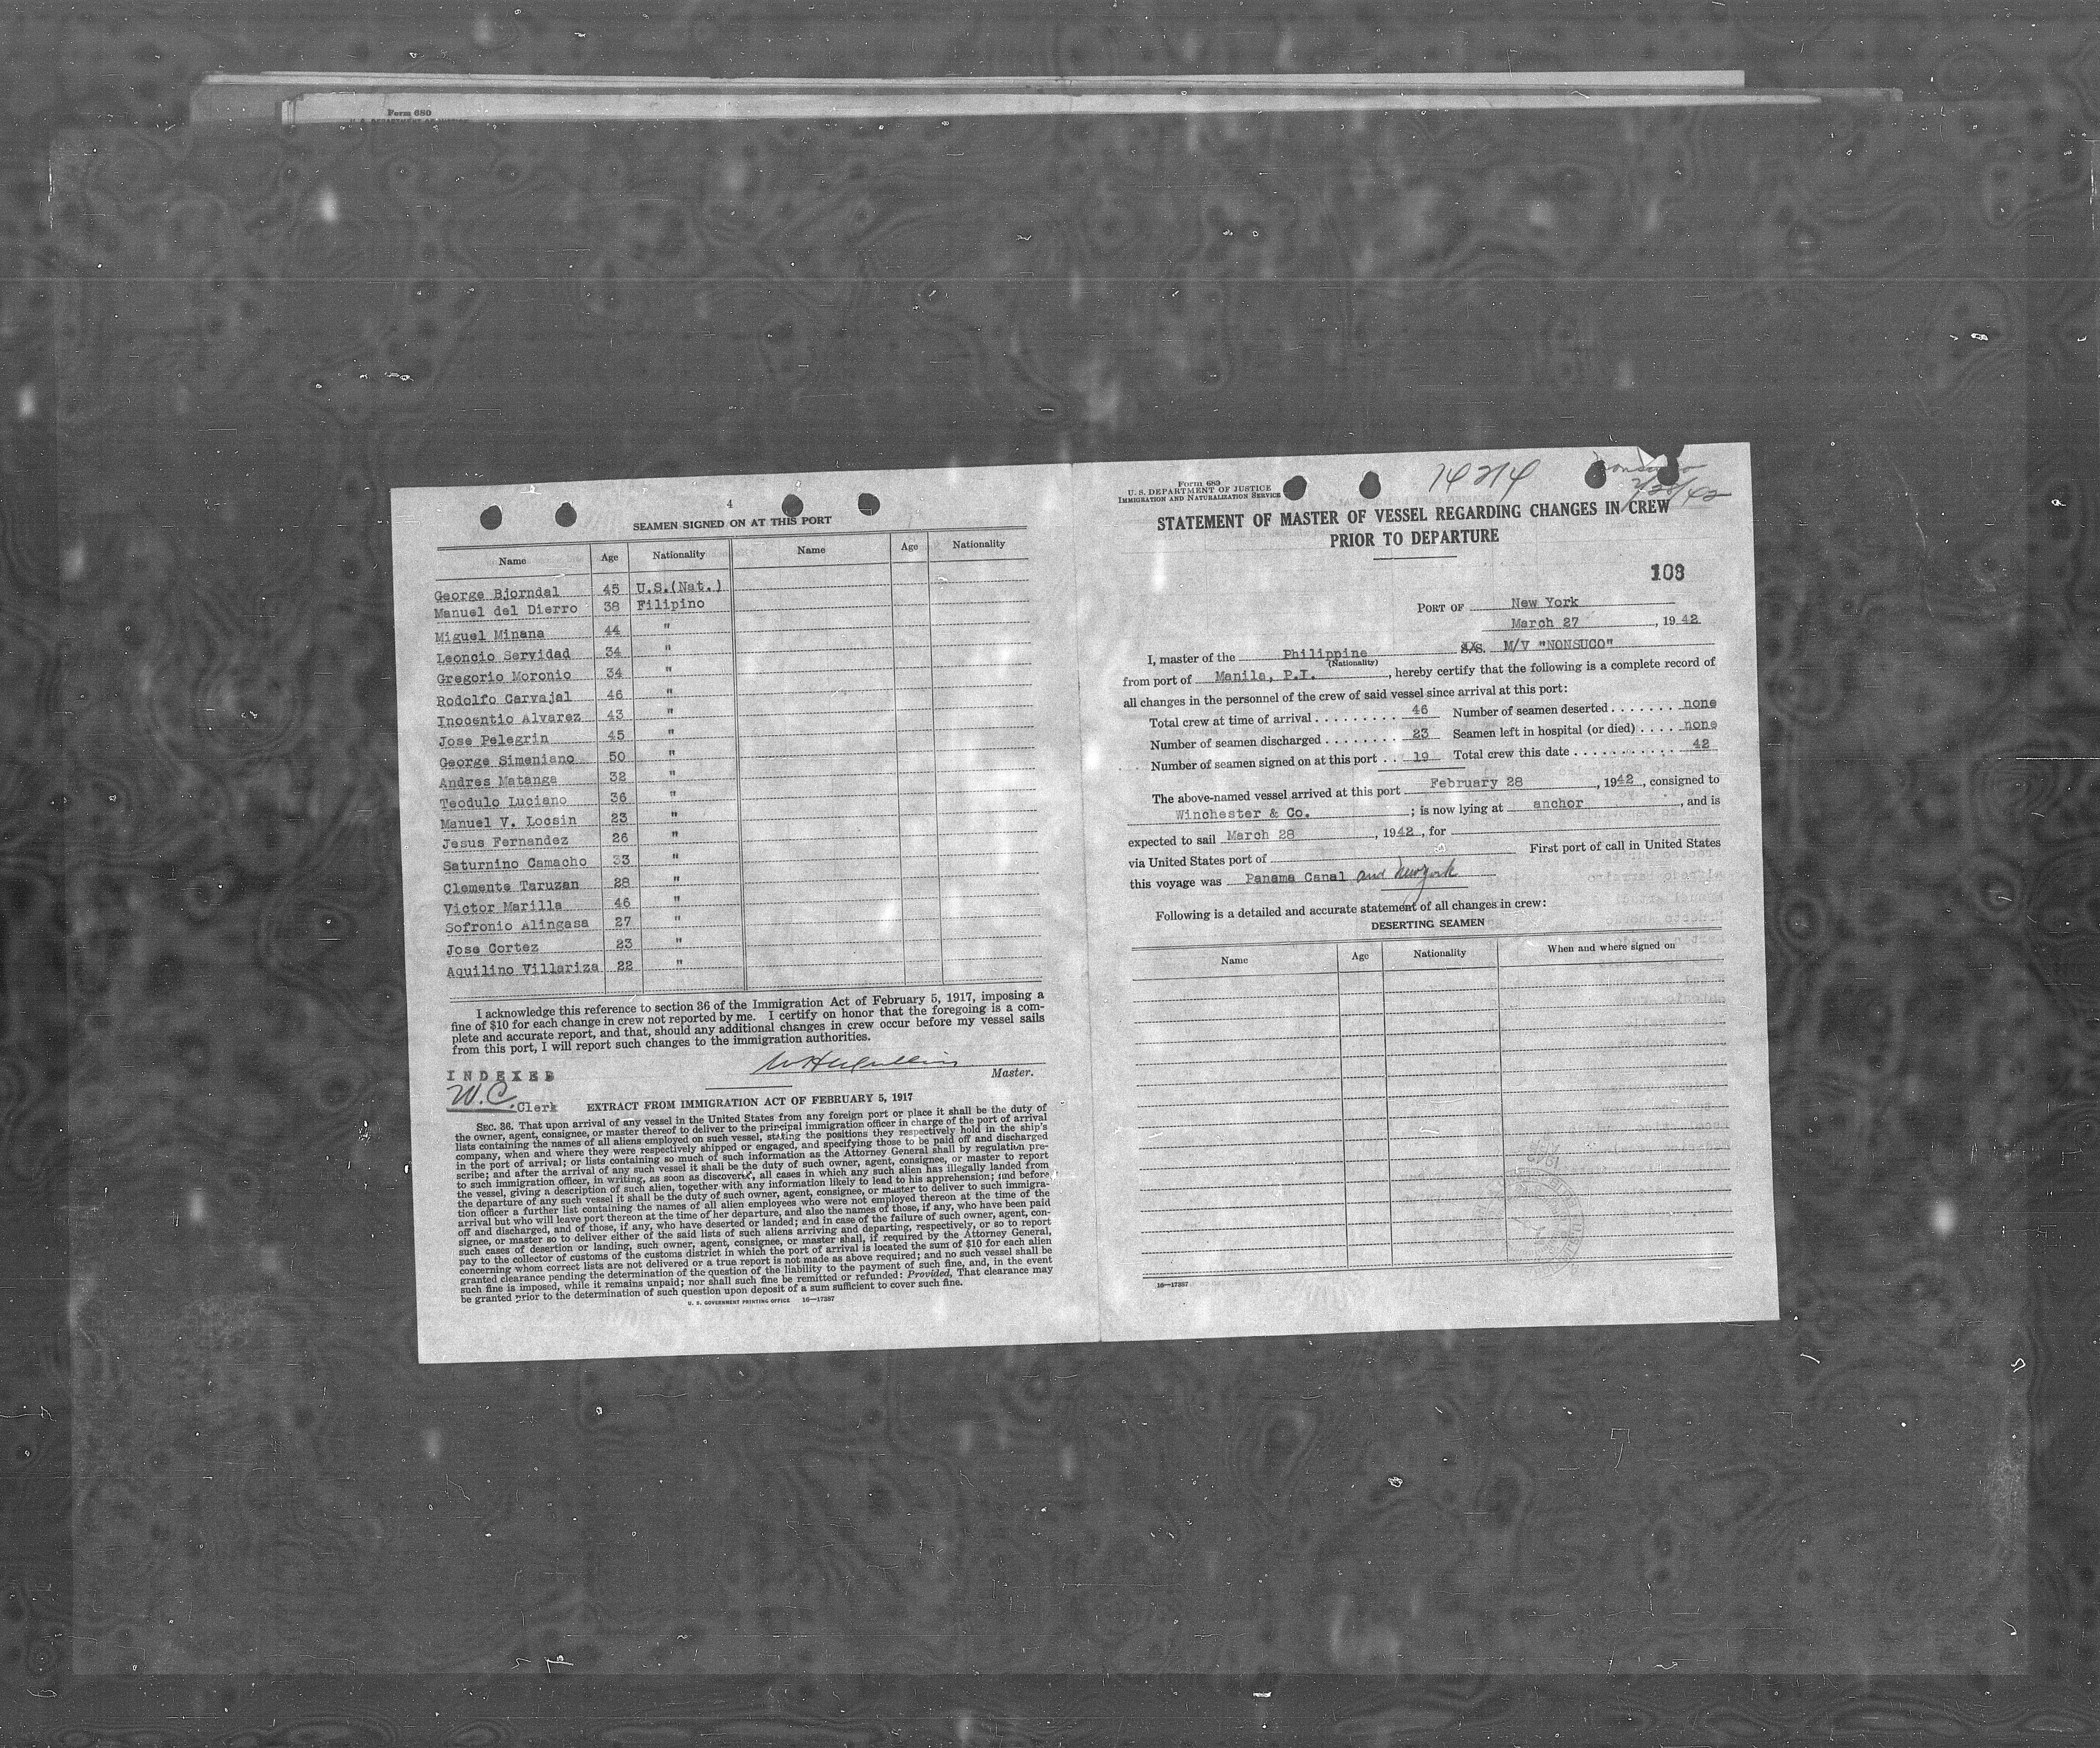 Form 680
U. S. DEPARTMENT OF JUSTICE
4
SEAMEN SIGNED ON AT THIS PORT
Name Age Nationality Name Age Nationality
George Bjorndal 45 U.S.(Nat.)
Manuel del Dierro 38 Filipino
Miguel Minana 44 "
Leoncio Servidad 34 "
Gregorio Moronio 34 "
Rodolfo Carvajal 46 "
Inocentio Alvarez 43 "
Jose Pelegrin 45 "
George Simeniano 50 "
Andres Matanga 32 "
Teodulo Luciano 36 "
Manuel V. Locsin 23 "
Jesus Fernandez 26 "
Saturnino Camacho 33 "
Clemente Taruzan 28 "
Victor Marilla 46 "
Sofronio Alingasa 27 "
Jose Cortez 23 "
Aquilino Villariza 22 "
I acknowledge this reference to section 36 of the Immigration Act of February 5, 1917, imposing a
fine of $10 for each change in crew not reported by me. I certify on honor that the foregoing is a com-
plete and accurate report, and that, should any additional changes in crew occur before my vessel sails
from this port, I will report such changes to the immigration authorities.
Master.
INDEXED
W.C. Clerk
EXTRACT FROM IMMIGRATION ACT OF FEBRUARY 5, 1917
SEC. 36. That upon arrival of any vessel in the United States from any foreign port or place it shall be the duty of
the owner, agent, consignee, or master thereof to deliver to the principal immigration officer in charge of the port of arrival
lists containing the names of all aliens employed on such vessel, stating the positions they respectively hold in the ship's
company, when and where they were respectively shipped or engaged, and specifying those to be paid off and discharged
in the port of arrival; or lists containing so much of such information as the Attorney General shall by regulation pre-
scribe; and after the arrival of any such vessel it shall be the duty of such owner, agent, consignee, or master to report
to such immigration officer, in writing, as soon as discovered, all cases in which any such alien has illegally landed from
the vessel, giving a description of such alien, together with any information likely to lead to his apprehension; and before
the departure of any such vessel it shall be the duty of such owner, agent, consignee, or master to deliver to such immigra-
tion officer a further list containing the names of all alien employees who were not employed thereon at the time of the
arrival but who will leave port thereon at the time of her departure, and also the names of those, if any, who have been paid
off and discharged, and of those, if any, who have deserted or landed; and in case of the failure of such owner, agent, con-
signee, or master so to deliver either of the said lists of such aliens arriving and departing, respectively, or so to report
such cases of desertion or landing, such owner, agent, consignee, or master shall, if required by the Attorney General,
pay to the collector of customs of the customs district in which the port of arrival is located the sum of $10 for each alien
concerning whom correct lists are not delivered or a true report is not made as above required; and no such vessel shall be
granted clearance pending the determination of the question of the liability to the payment of such fine, and, in the event
such fine is imposed, while it remains unpaid; nor shall such fine be remitted or refunded: Provided, That clearance may
be granted prior to the determination of such question upon deposit of a sum sufficient to cover such fine.
U. S. GOVERNMENT PRINTING OFFICE 16—17387
Form 689
U. S. DEPARTMENT OF JUSTICE
IMMIGRATION AND NATURALIZATION SERVICE
14214
STATEMENT OF MASTER OF VESSEL REGARDING CHANGES IN CREW
PRIOR TO DEPARTURE
103
PORT OF New York
March 27, 1942
I, master of the Philippine S/S. M/V "NONSUCO"
(Nationality)
from port of Manila, P.I., hereby certify that the following is a complete record of
all changes in the personnel of the crew of said vessel since arrival at this port:
Total crew at time of arrival 46 Number of seamen deserted none
Number of seamen discharged 23 Seamen left in hospital (or died) none
Number of seamen signed on at this port 19 Total crew this date 42
The above-named vessel arrived at this port February 28, 1942, consigned to
Winchester & Co.; is now lying at anchor, and is
expected to sail March 28, 1942, for
via United States port of First port of call in United States
this voyage was Panama Canal and New York
Following is a detailed and accurate statement of all changes in crew:
DESERTING SEAMEN
Name Age Nationality When and where signed on
16—17387